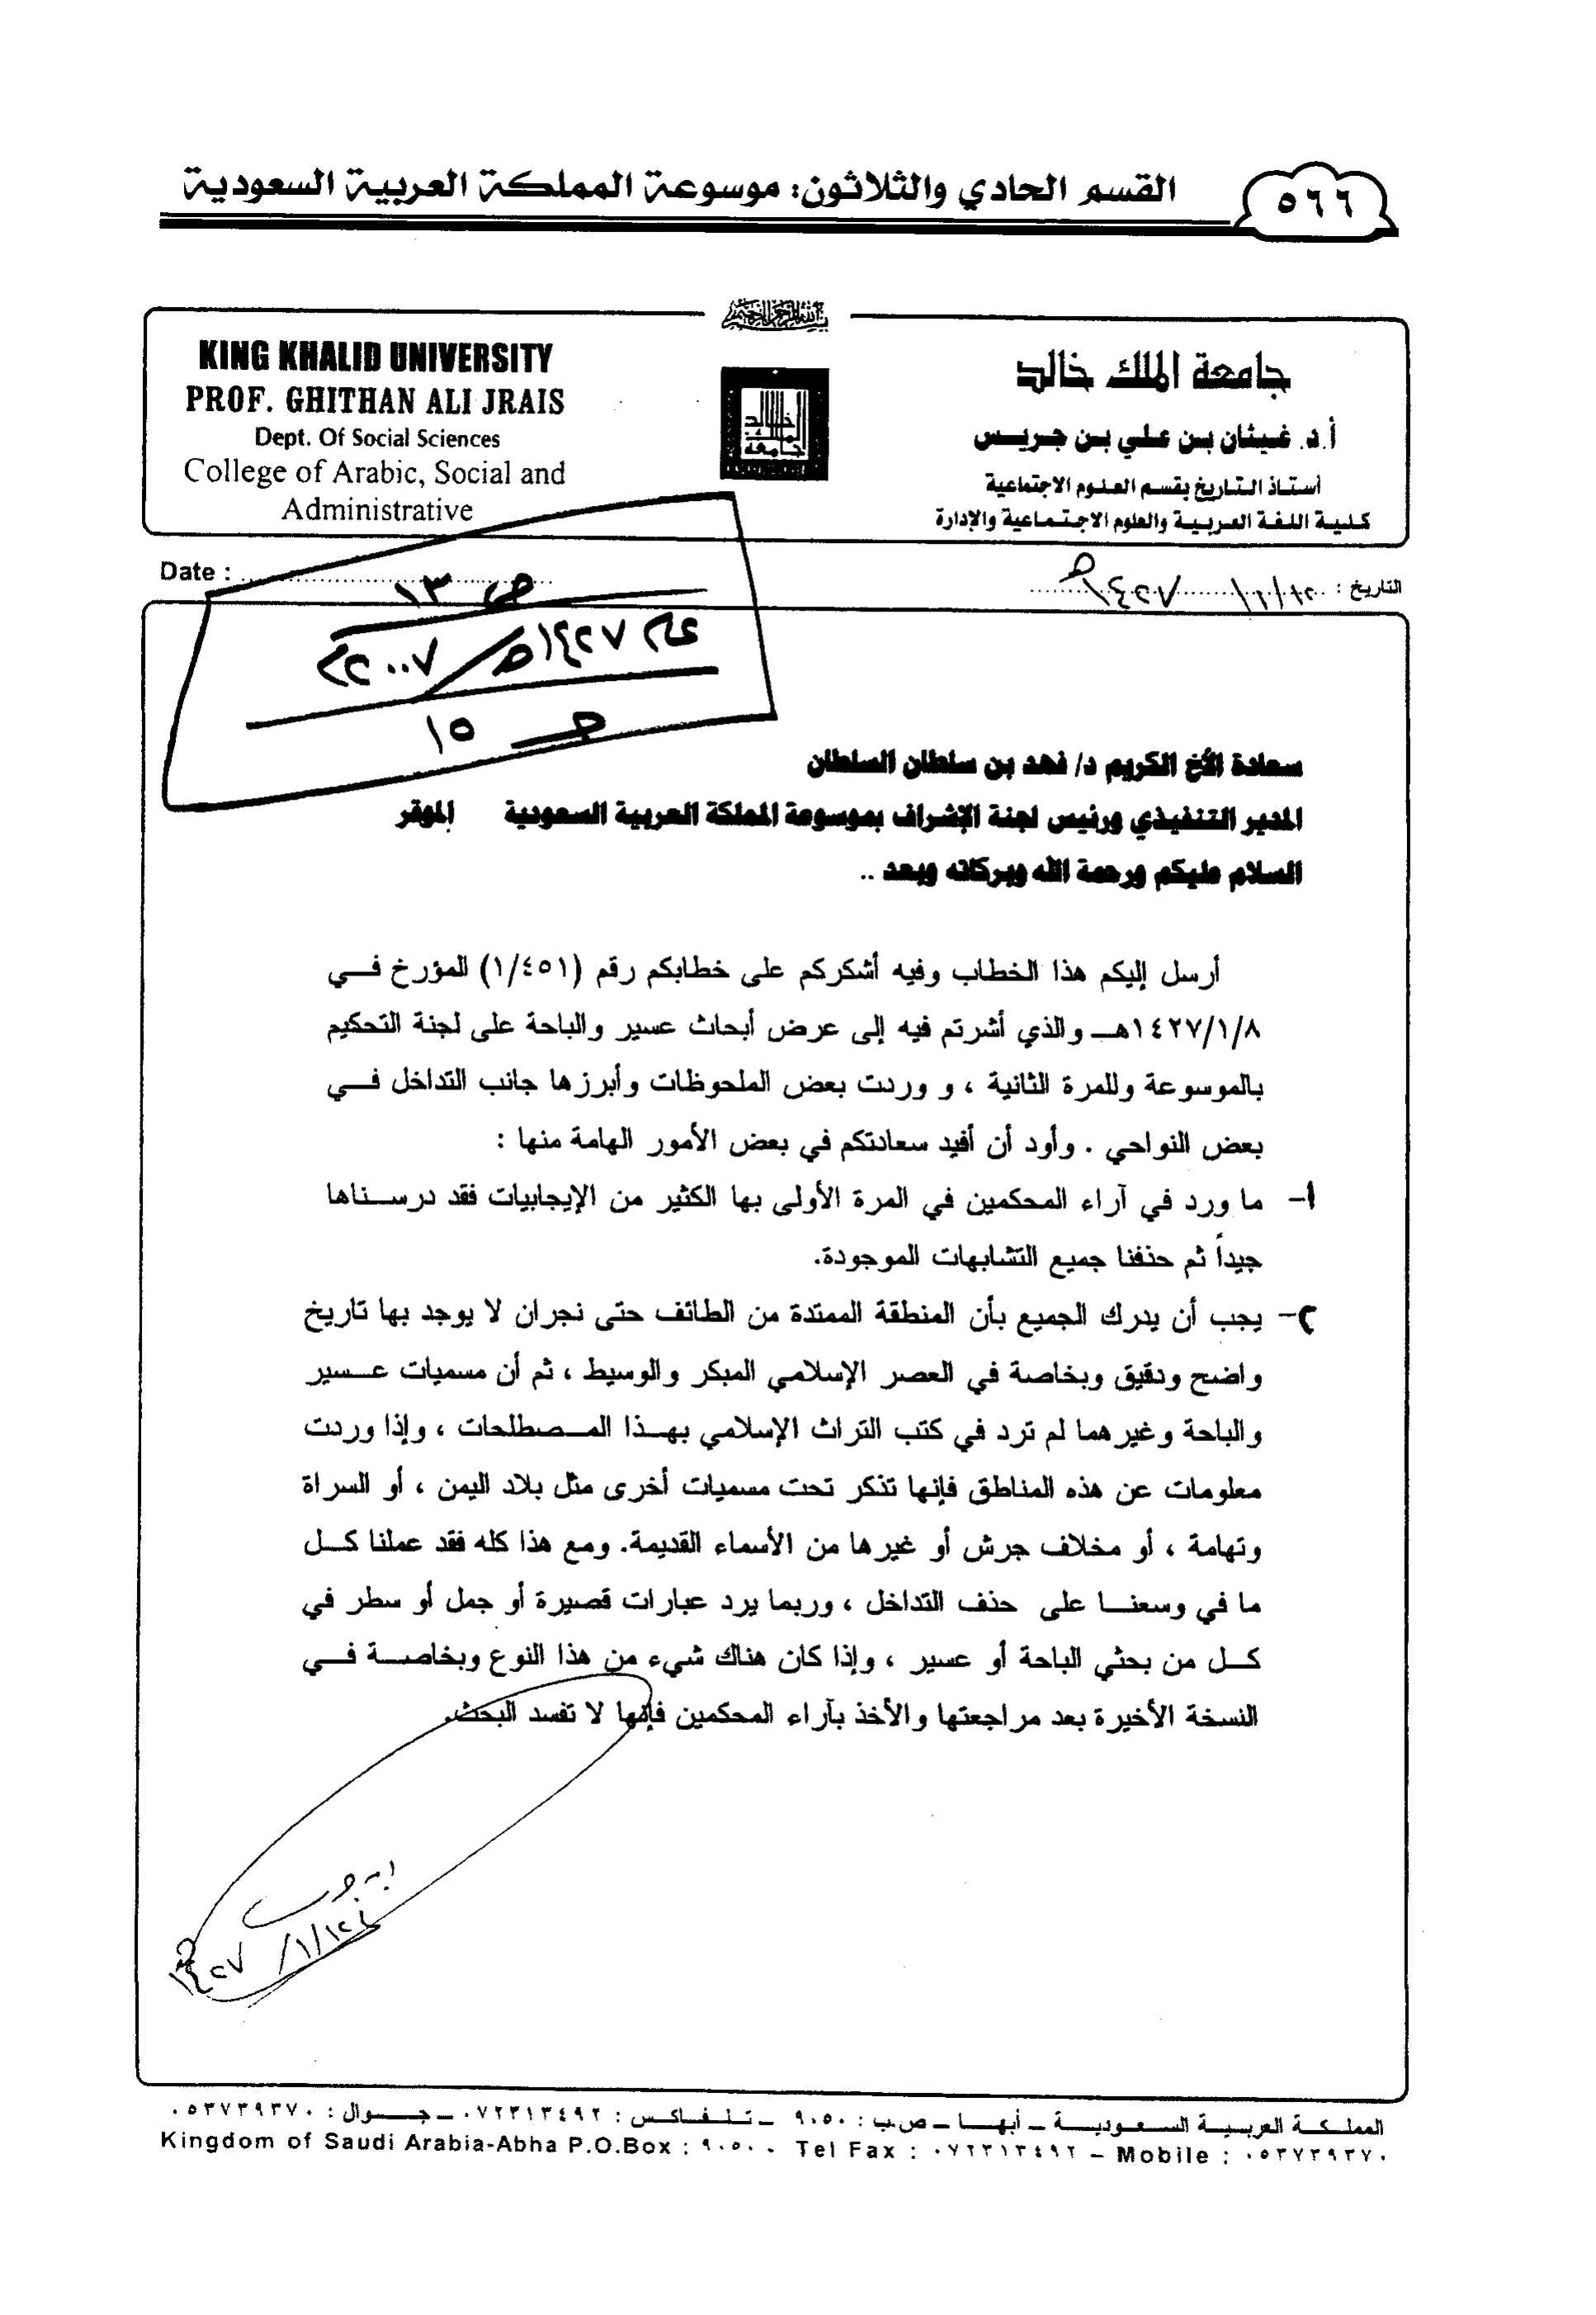 القسم الحادي والثلاثون: موسوعة المملكة العربية السعودية
٥٦٦
بسم الله الرحمن الرحيم
KING KHALID UNIVERSITY
PROF. GHITHAN ALI JRAIS
Dept. Of Social Sciences
College of Arabic, Social and
Administrative
جامعة الملك خالد
أ.د. غيثان بن علي بن جريس
أستاذ التاريخ بقسم العلوم الاجتماعية
كلية اللغة العربية والعلوم الاجتماعية والإدارة
جامعة الملك خالد
Date :
التاريخ : ١٤٢٧هـ
ص ١٣
عام ١٤٢٧هـ/٢٠٠٧م
جـ ١٥
سعادة الأخ الكريم د/ فهد بن سلطان السلطان
المدير التنفيذي ورئيس لجنة الإشراف بموسوعة المملكة العربية السعودية الموقر
السلام عليكم ورحمة الله وبركاته وبعد ..
أرسل إليكم هذا الخطاب وفيه أشكركم على خطابكم رقم (١/٤٥١) المؤرخ في
١٤٢٧/١/٨هـ والذي أشرتم فيه إلى عرض أبحاث عسير والباحة على لجنة التحكيم
بالموسوعة وللمرة الثانية ، و وردت بعض الملحوظات وأبرزها جانب التداخل في
بعض النواحي . وأود أن أفيد سعادتكم في بعض الأمور الهامة منها :
١- ما ورد في آراء المحكمين في المرة الأولى بها الكثير من الإيجابيات فقد درسناها
جيداً ثم حذفنا جميع التشابهات الموجودة.
٢- يجب أن يدرك الجميع بأن المنطقة الممتدة من الطائف حتى نجران لا يوجد بها تاريخ
واضح ودقيق وبخاصة في العصر الإسلامي المبكر والوسيط ، ثم أن مسميات عسير
والباحة وغيرهما لم ترد في كتب التراث الإسلامي بهذا المصطلحات ، وإذا وردت
معلومات عن هذه المناطق فإنها تذكر تحت مسميات أخرى مثل بلاد اليمن ، أو السراة
وتهامة ، أو مخلاف جرش أو غيرها من الأسماء القديمة. ومع هذا كله فقد عملنا كل
ما في وسعنا على حذف التداخل ، وربما يرد عبارات قصيرة أو جمل أو سطر في
كل من بحثي الباحة أو عسير ، وإذا كان هناك شيء من هذا النوع وبخاصة في
النسخة الأخيرة بعد مراجعتها والأخذ بآراء المحكمين فإنها لا تفسد البحث.
المملكة العربية السعودية – أبها – ص.ب : ٩٠٥٠ – تلفاكس : ٠٧٢٣١٣٤٩٢ – جوال : ٠٥٣٧٣٩٣٧٠
Kingdom of Saudi Arabia-Abha P.O.Box : ٩٠٥٠ - Tel Fax : ٠٧٢٣١٣٤٩٢ – Mobile : ٠٥٣٧٣٩٣٧٠